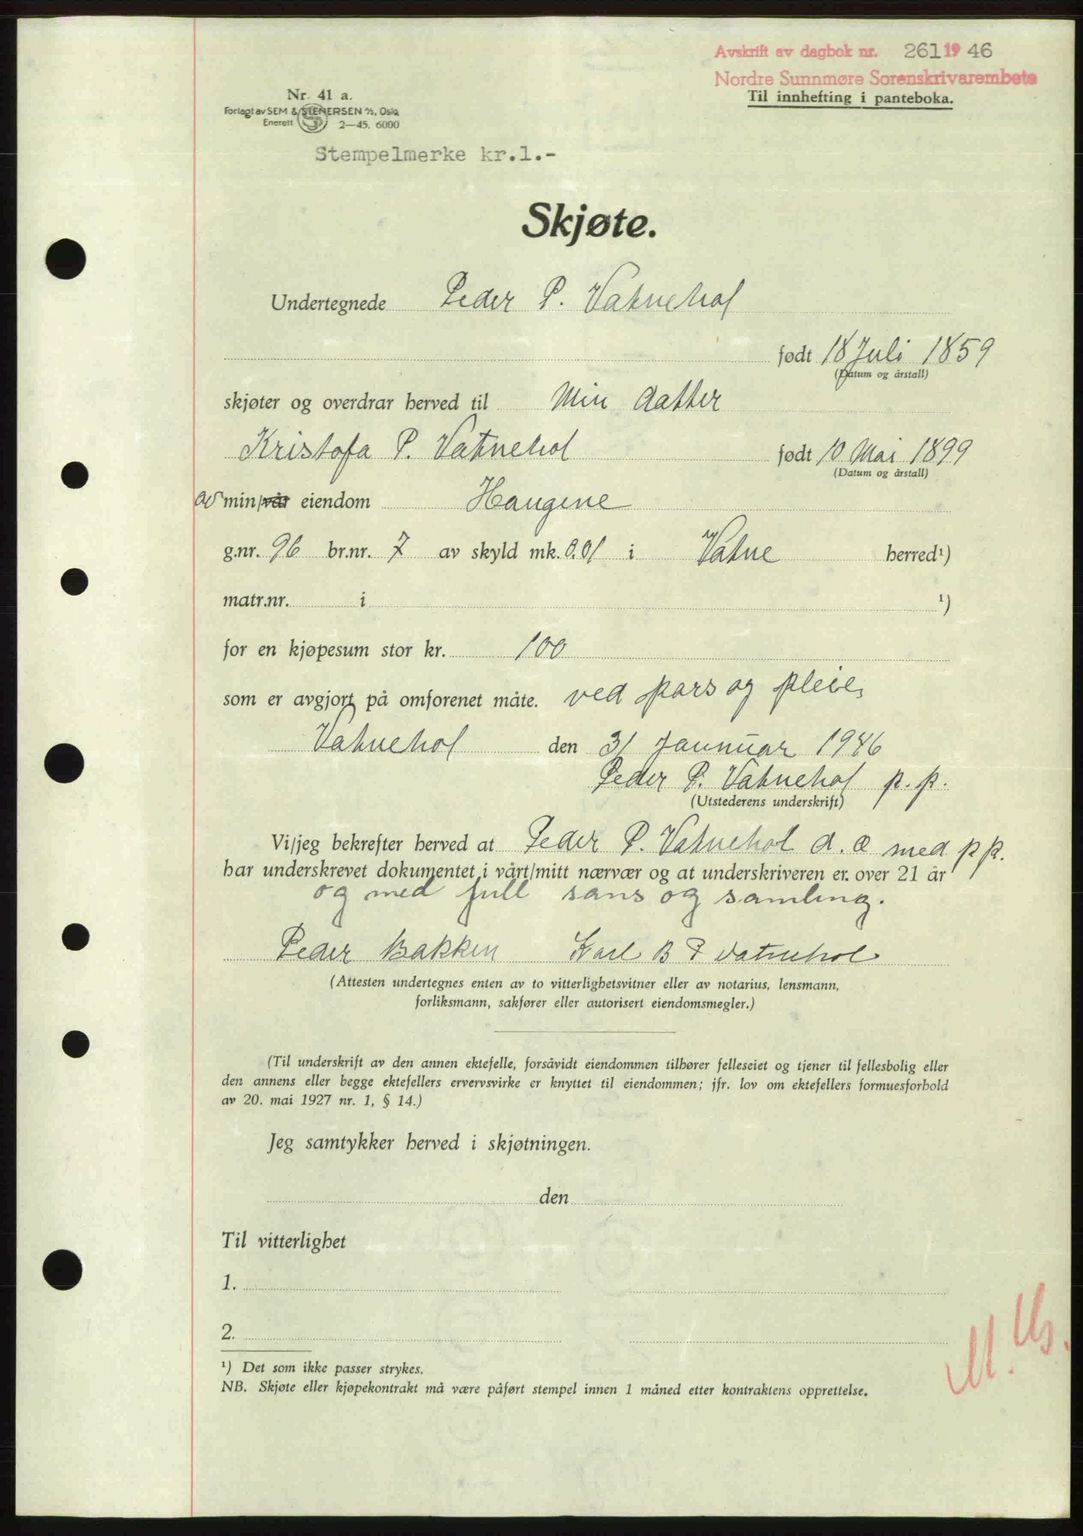 Avskrift av dagbok nr. 261 1946
Nordre Sunnmøre Sorenskrivarembete
Til innhefting i panteboka.
Nr. 41 a.
Forlagt av SEM & STENERSEN A/S, Oslo
Enerett 2—45. 6000
Stempelmerke kr.1.-
Skjøte.
Undertegnede Peder P. Vatnehol
født 18 Juli 1859
(Datum og årstall)
skjøter og overdrar herved til Min datter
Kristofa P. Vatnehol født 10 Mai 1899
(Datum og årstall)
av min/vår eiendom Haugene
g.nr. 96 br.nr. 7 av skyld mk. 0.01 i Vatne herred¹)
matr.nr. i ¹)
for en kjøpesum stor kr. 100
som er avgjort på omforenet måte. ved pass og pleie,
Vatnehol den 31 Januar 1946
Peder P. Vatnehol p. p.
(Utstederens underskrift)
Vi/jeg bekrefter herved at Peder P. Vatnehol d. æ med p p.
har underskrevet dokumentet i vårt/mitt nærvær og at underskriveren er over 21 år
og med full sans og samling.
Peder Bakken Karl B P Vatnehol
(Attesten undertegnes enten av to vitterlighetsvitner eller av notarius, lensmann,
forliksmann, sakfører eller autorisert eiendomsmegler.)
(Til underskrift av den annen ektefelle, forsåvidt eiendommen tilhører felleseiet og tjener til fellesbolig eller
den annens eller begge ektefellers ervervsvirke er knyttet til eiendommen; jfr. lov om ektefellers formuesforhold
av 20. mai 1927 nr. 1, § 14.)
Jeg samtykker herved i skjøtningen.
den
Til vitterlighet
1.
2.
¹) Det som ikke passer strykes.
NB. Skjøte eller kjøpekontrakt må være påført stempel innen 1 måned etter kontraktens opprettelse.